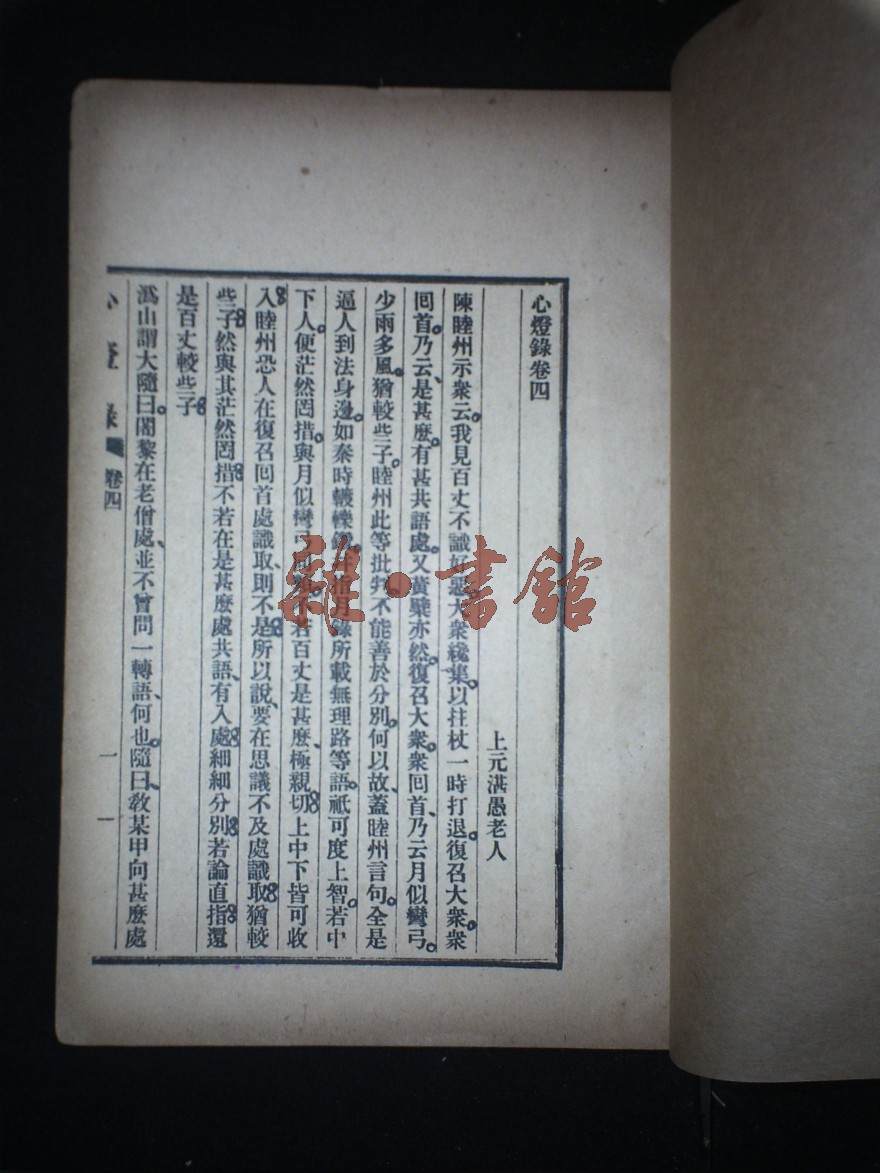 心燈錄卷四
上元湛愚老人
陳睦州示衆云。我見百丈不識好惡大衆纔集。以拄杖一時打退。復召大衆。衆
回首。乃云、是甚麽。有甚共語處。又黃檗亦然。復召大衆。衆回首、乃云月似彎弓。
少雨多風。猶較些子。睦州此等批判。不能善於分別。何以故、蓋睦州言句。全是
逼人到法身邊。如秦時轆轢鑽。并指月錄所載無理路等語。祇可度上智。若中
下人。便茫然罔措。與月似彎弓同類。不若百丈是甚麽、極親切。上中下皆可收
入。睦州恐人在復召回首處識取、則不是。所以說、要在思議不及處識取。猶較
些子。然與其茫然罔措。不若在是甚麽處共語、有入處。細細分別。若論直指。還
是百丈較些子。
潙山謂大隨曰。闍黎在老僧處、並不曾問一轉語、何也。隨曰、敎某甲向甚麽處
心燈錄 卷四 一 一
雜·書館